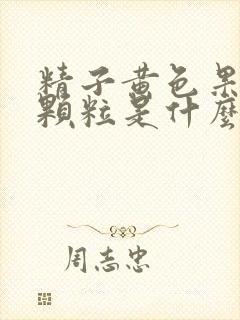 精子黄色果
颗粒是什麼
周志忠